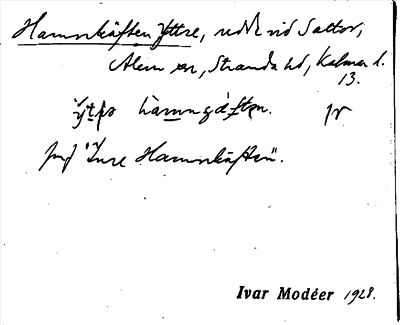 Hamnkäften Yttre, redd vid Sattor,
Ålem sn, Stranda hd, Kalmar l.
13.
hàmngäften.
jmf "Inre Hamnkäften".
Ivar Modéer 1928.